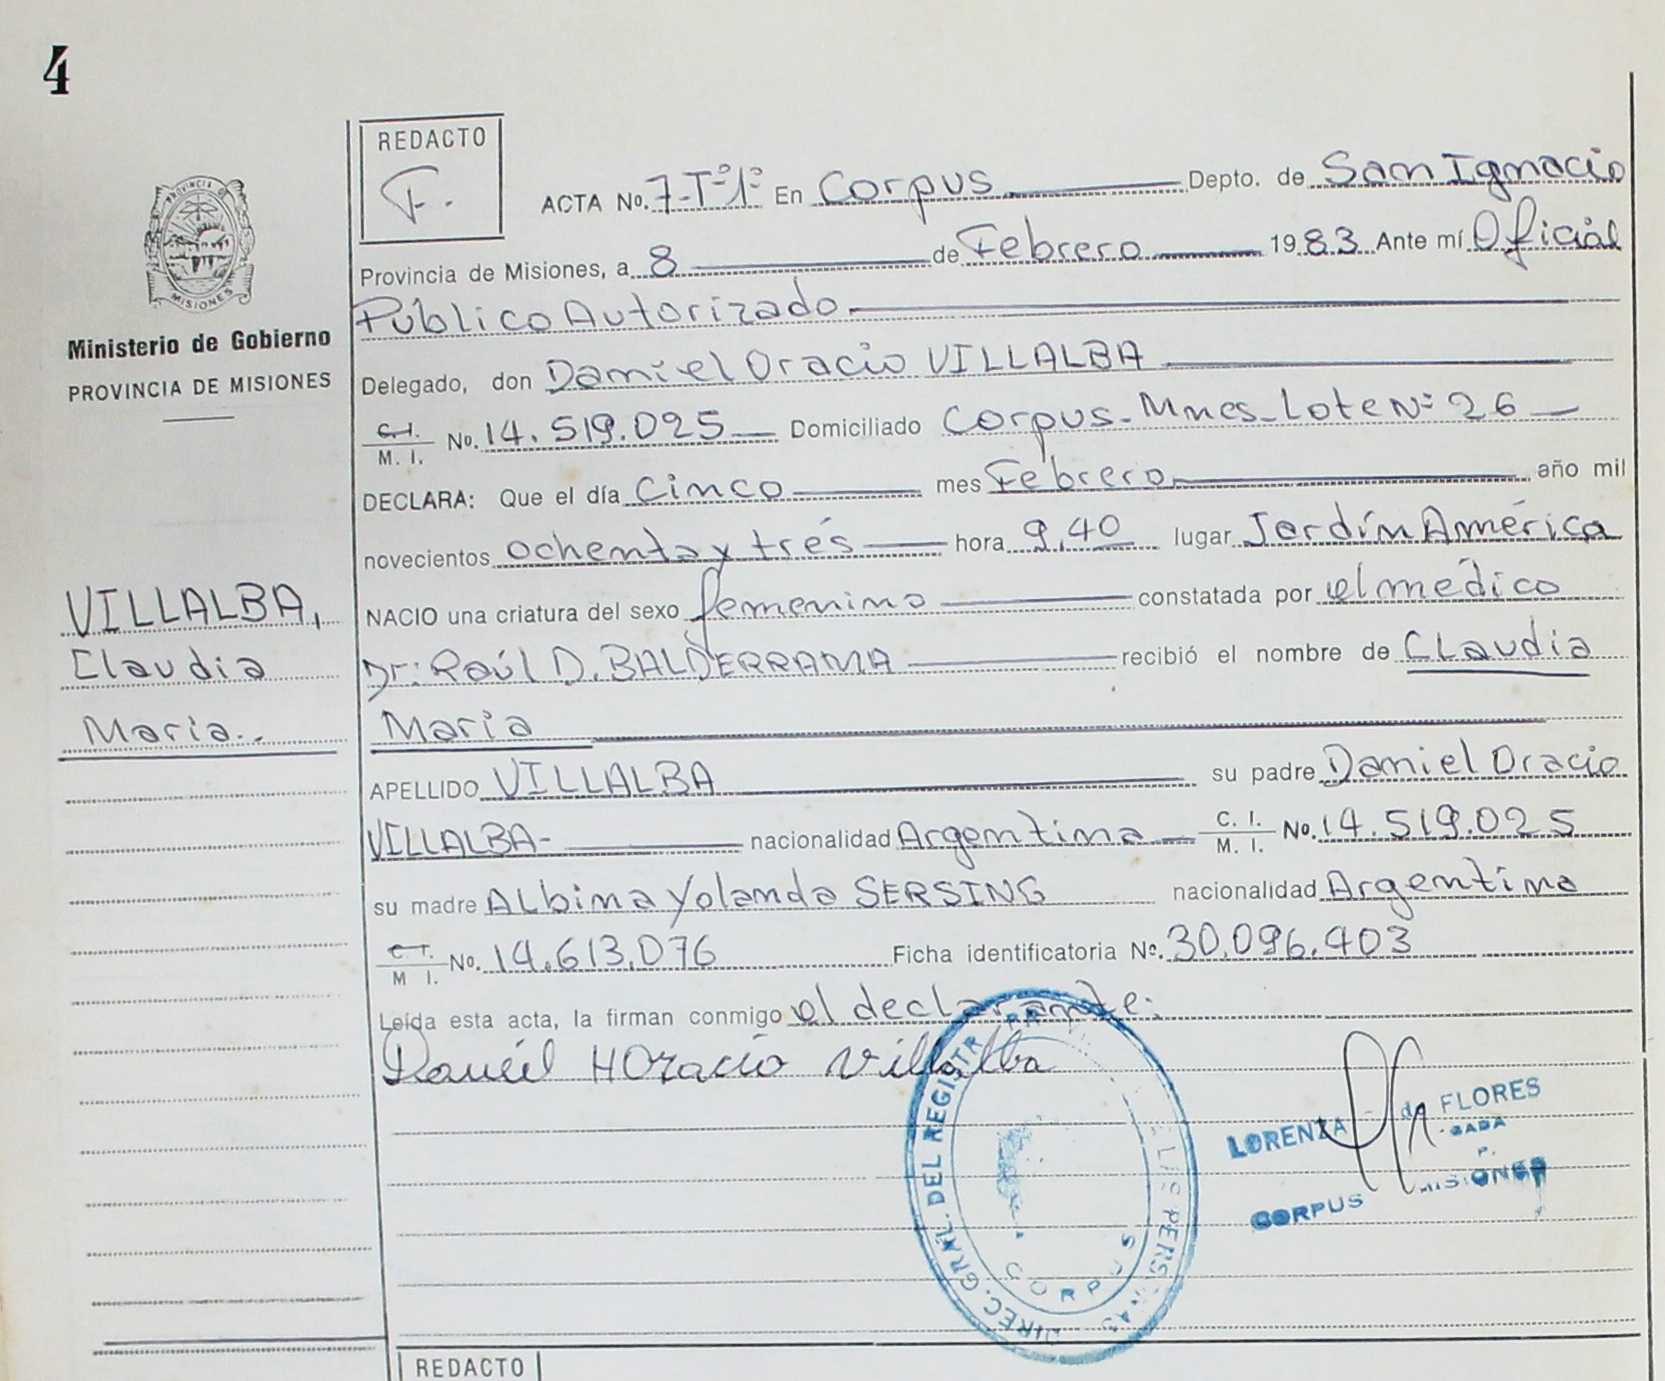 4
REDACTO
F.
PROVINCIA
MISIONES
Ministerio de Gobierno
PROVINCIA DE MISIONES
ACTA No. 7-Tº1º En Corpus Depto. de San Ignacio
Provincia de Misiones, a 8 de Febrero 1983 Ante mí Oficial
Público Autorizado
Delegado, don Daniel Oracio VILLALBA
C.I. M. I. No. 14.519.025 Domiciliado Corpus-Mnes-Lote Nº 26
DECLARA: Que el día Cinco mes Febrero año mil
novecientos ochenta y trés hora 9,40 lugar Jardín América
NACIO una criatura del sexo femenino constatada por el médico
Dr: Raúl D. BALDERRAMA recibió el nombre de Claudia
Maria
VILLALBA,
Claudia
Maria..
APELLIDO VILLALBA su padre Daniel Oracio
VILLALBA- nacionalidad Argentina C. I. M. I. No. 14.519.025
su madre Albina Yolanda SERSING nacionalidad Argentina
C. I. M I. No. 14.613.076 Ficha identificatoria Nº. 30.096.403
Leída esta acta, la firman conmigo el declarante:
Daniel HOracio Villalba
DIREC. GRAL. DEL REGISTR
CORPUS
LORENZA de FLORES
CORPUS MISIONES
REDACTO